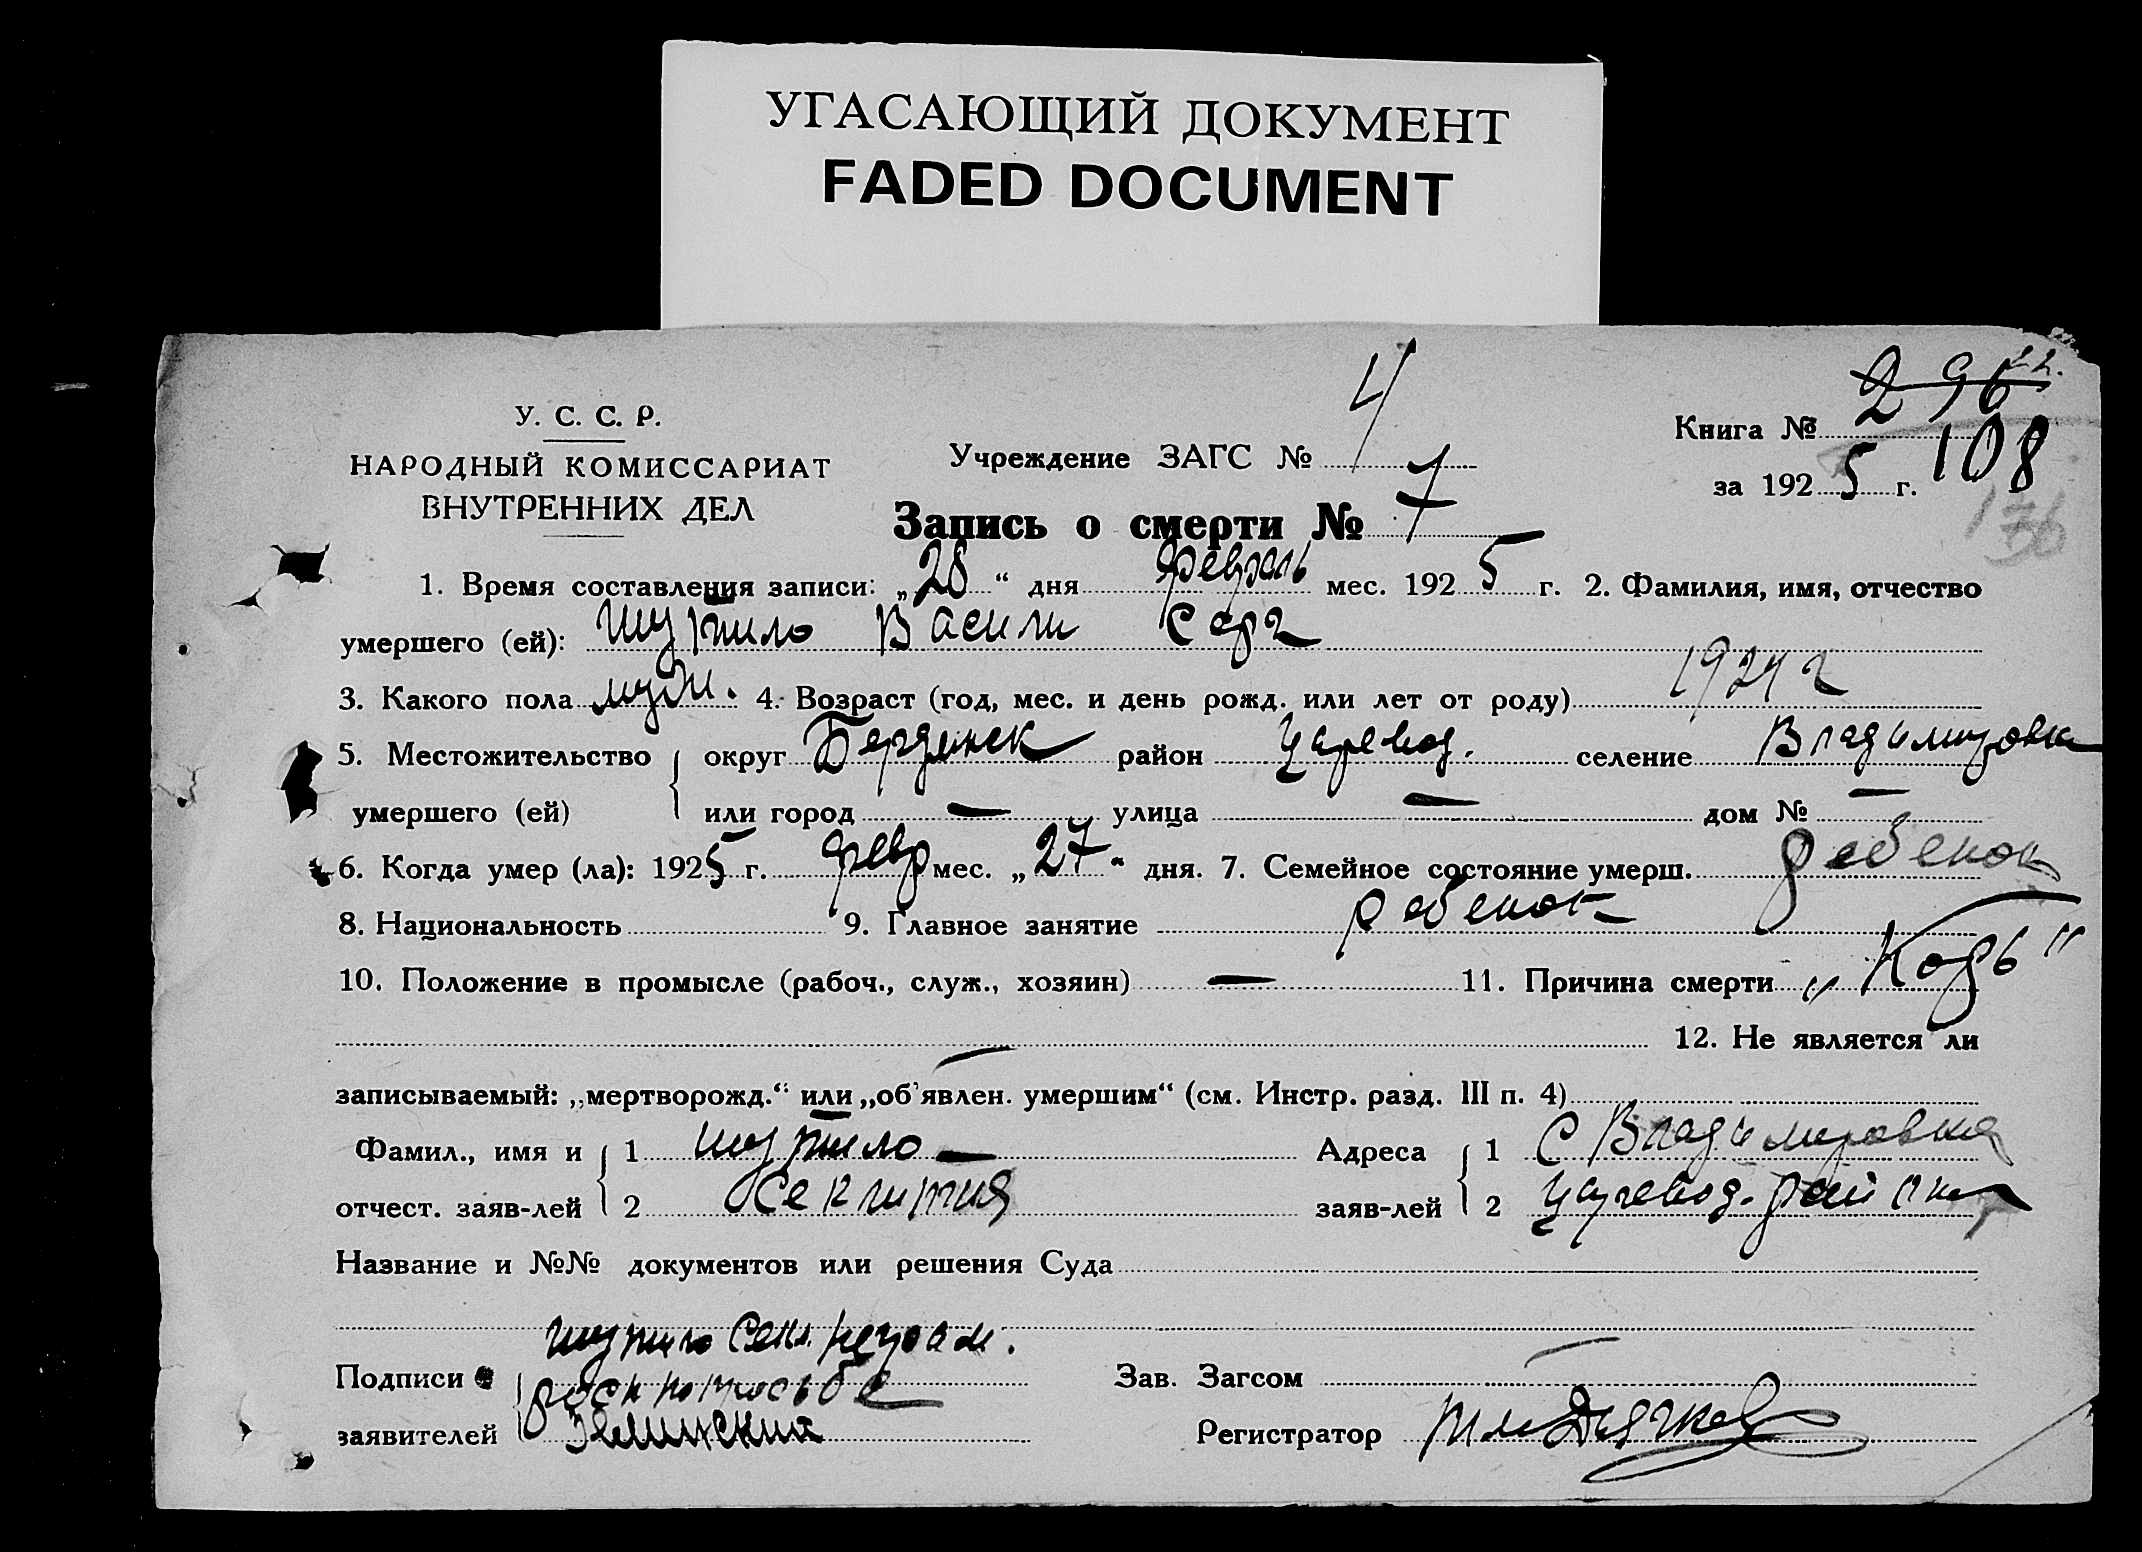 УГАСАЮЩИЙ ДОКУМЕНТ
FADED DOCUMENT
У. С. С. Р.
НАРОДНЫЙ КОМИССАРИАТ
ВНУТРЕННИХ ДЕЛ
Учреждение ЗАГС № 4
Книга № 296
за 1925 г. 108
136
Запись о смерти № 7
1. Время составления записи: „28“ дня февраль мес. 1925 г. 2. Фамилия, имя, отчество
умершего (ей): Шутило Васили Серг
3. Какого пола муж. 4. Возраст (год, мес. и день рожд. или лет от роду) 1924 г
5. Местожительство округ Бердянск район Царевод. селение Владимировка
умершего (ей) или город — улица — дом № —
6. Когда умер (ла): 1925 г. февр мес. „27“ дня. 7. Семейное состояние умерш. ребенок
8. Национальность 9. Главное занятие ребенок
10. Положение в промысле (рабоч., служ., хозяин) — 11. Причина смерти „Корь"
12. Не является ли
записываемый: „мертворожд.“ или „об'явлен. умершим“ (см. Инстр. разд. III п. 4) —
Фамил., имя и 1 Шутило — Адреса 1 С Владимировка
отчест. заяв-лей 2 Секлития заяв-лей 2 Царевод. район
Название и №№ документов или решения Суда
Шутило Секл. неграм.
Подписи расп по просьбе Зав. Загсом —
заявителей Регистратор